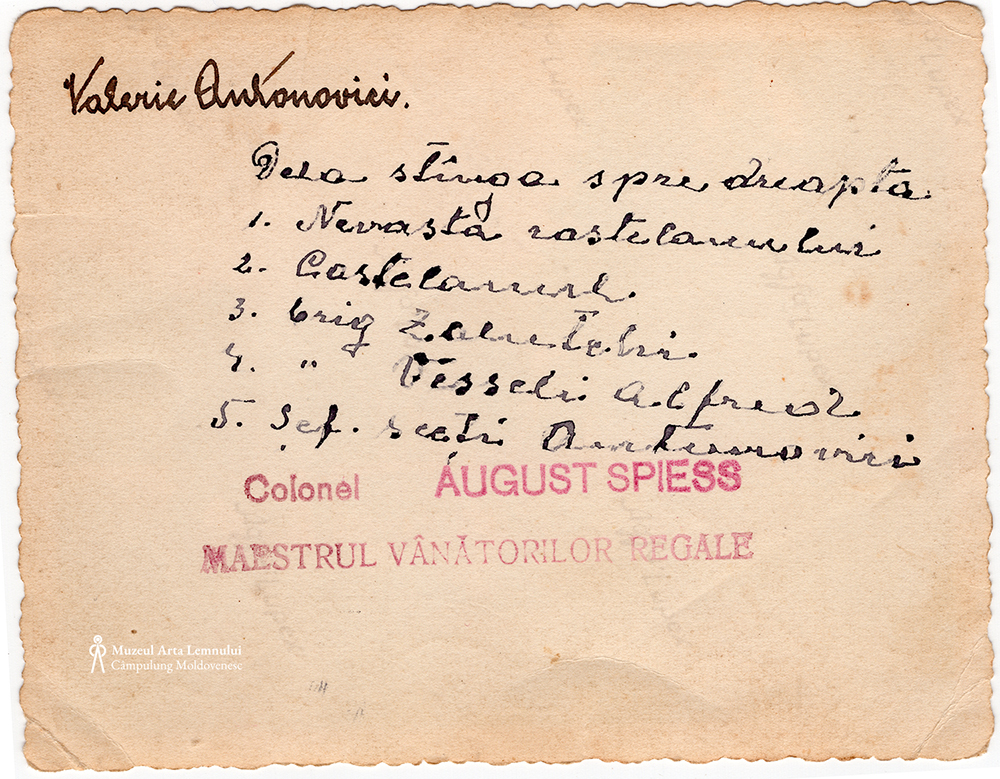 Valerie Antonovici.
Dela stînga spre dreapta
1. Nevasta castelanului
2. Castelanul.
3. brig Zalutchi.
4. " Vesseli Alfred
5. Șef. secți Antonovici
Colonel AUGUST SPIESS
MAESTRUL VÂNĂTORILOR REGALE
Muzeul Arta Lemnului
Câmpulung Moldovenesc